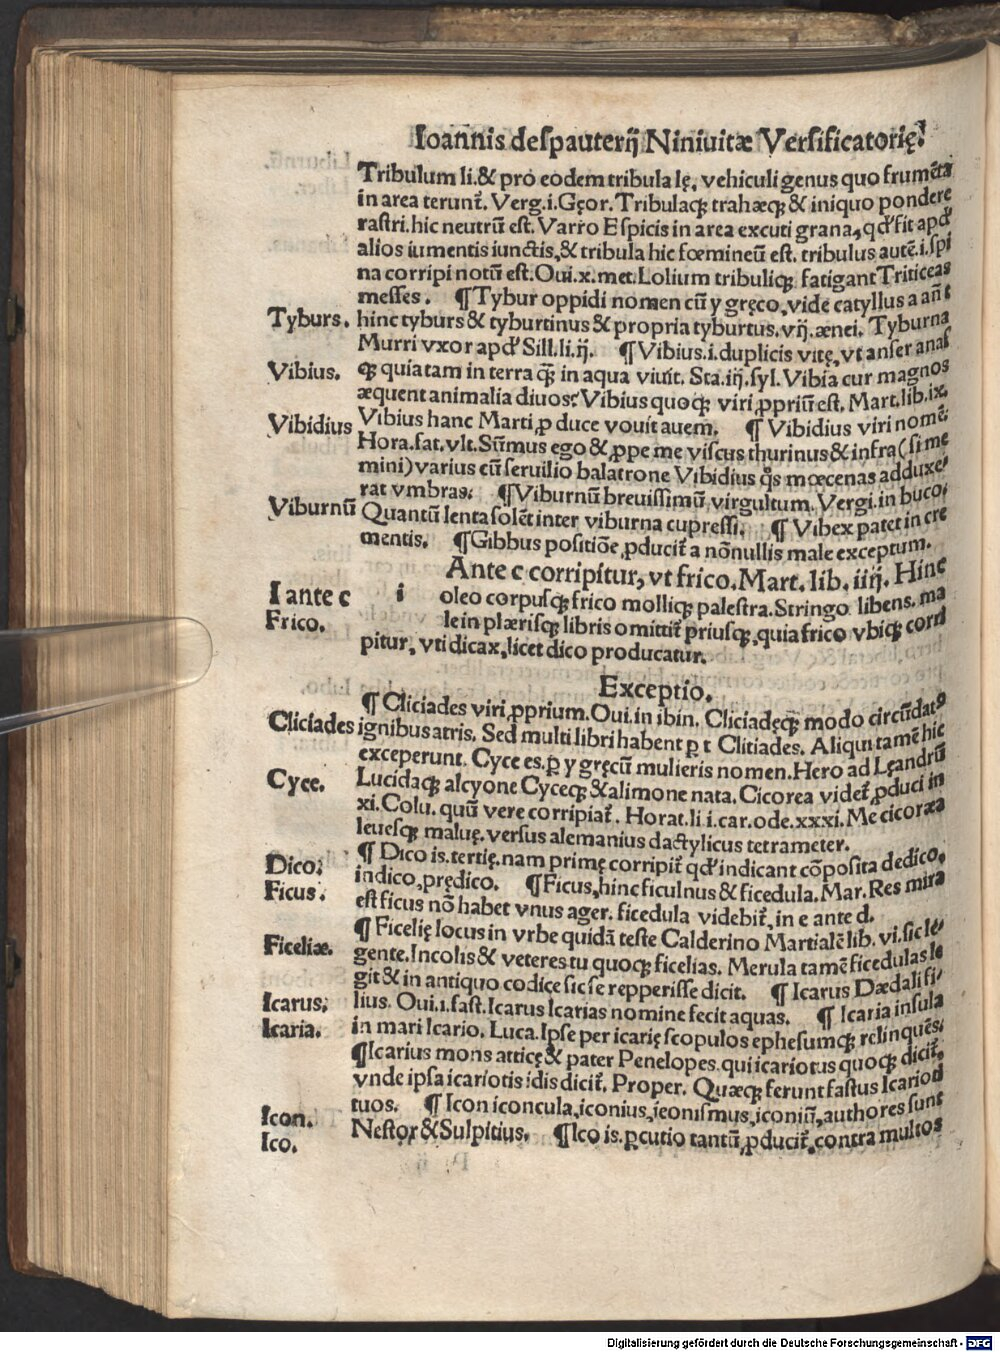 Ioannis deſpauterij Niniuitæ Verſificatorię.
Tribulum li.& pro eodem tribula lę, vehiculi genus quo frumēta
in area terunt᷑. Verg.i.Gęor. Tribulaqꝫ trahæqꝫ & iniquo pondere
raſtri. hic neutrū eſt. Varro E ſpicis in area excuti grana, qđ fit apđ
alios iumentis iunctis, & tribula hic fœmineū eſt. tribulus autē.i.ſpi
na corripi notū eſt. Oui.x.met. Lolium tribuliqꝫ fatigant Triticeas
meſſes. ¶ Tybur oppidi nomen cū y gręco, vide catyllus a añ t
Tyburs. hinc tyburs & tyburtinus & propria tyburtus. vij. ænei. Tyburna
Murri vxor apđ Sill.li.ij. ¶ Vibius.i.duplicis vitę, vt anſer anaſ
Vibius. qꝫ quia tam in terra ꝗ̄ in aqua viuit. Sta.iij.ſyl. Vibia cur magnos
æquent animalia diuos: Vibius quoqꝫ viri ꝓpriū eſt. Mart.lib.ix.
Vibidius Vibius hanc Marti, ꝓ duce vouit auem. ¶ Vibidius viri nomē.
Hora.ſat.vlt. Sūmus ego & ꝓpe me viſcus thurinus & infra (ſi me
mini) varius cū ſeruilio balatrone Vibidius qͦs mœcenas adduxe/
rat vmbras. ¶ Viburnū breuiſſimū virgultum. Vergi.in buco.
Viburnū Quantū lenta ſolēt inter viburna cupreſſi. ¶ Vibex patet in cre
mentis. ¶ Gibbus poſitiōe ꝓducit᷑ a nōnullis male exceptum.
Ante c corripitur, vt frico. Mart. lib. iiij. Hinc
I ante c i oleo corpuſqꝫ frico molliqꝫ palęſtra. Stringo libens. ma
Frico. le in plæriſqꝫ libris omittit᷑ priuſqꝫ, quia frico vbiqꝫ corri
pitur, vti dicax, licet dico producatur.
Exceptio.
¶ Cliciades viri ꝓprium. Oui.in ibin. Cliciadęqꝫ modo circūdatꝰ
Cliciades ignibus atris. Sed multi libri habent ꝑ t Clitiades. Aliqui tamē hic
exceperunt. Cyce es. ꝑ y gręcū mulieris nomen. Hero ad Lęandrū
Cyce. Lucidaqꝫ alcyone Cyceqꝫ & alimone nata. Cicorea videt᷑ ꝓduci in
xi. Colu. quū vere corripiat᷑. Horat.li i.car.ode.xxxi. Me cicoræa
leueſqꝫ maluę. verſus alemanius dactylicus tetrameter.
Dico. ¶ Dico is. tertię. nam primę corripit᷑ qđ indicant cōpoſita dedico,
indico, prędico. ¶ Ficus, hinc ficulnus & ficedula. Mar. Res mira
Ficus. eſt ficus nō habet vnus ager. ficedula videbit᷑, in e ante d.
¶ Ficelię locus in vrbe quidā teſte Calderino Martialē lib. vi. ſic le/
Ficeliæ. gente. Incolis & veteres tu quoqꝫ ficelias. Merula tamē ficedulas le
git & in antiquo codice ſic ſe repperiſſe dicit. ¶ Icarus Dædali fi/
Icarus. lius. Oui.1.faſt. Icarus Icarias nomine fecit aquas. ¶ Icaria inſula
Icaria. in mari Icario. Luca. Ipſe per icarię ſcopulos epheſumqꝫ relinquēs.
¶ Icarius mons atticę & pater Penelopes. qui icariotus quoqꝫ dicit᷑.
vnde ipſa icariotis idis dicit᷑. Proper. Quæqꝫ ferunt faſtus Icarioti
tuos. ¶ Icon iconcula, iconius, iconiſmus, iconiū, authores ſunt
Icon. Neſtor & Sulpitius. ¶ Ico is. ꝑcutio tantū ꝓducit᷑, contra multos
Ico.
Digitalisierung gefördert durch die Deutsche Forschungsgemeinschaft - DFG